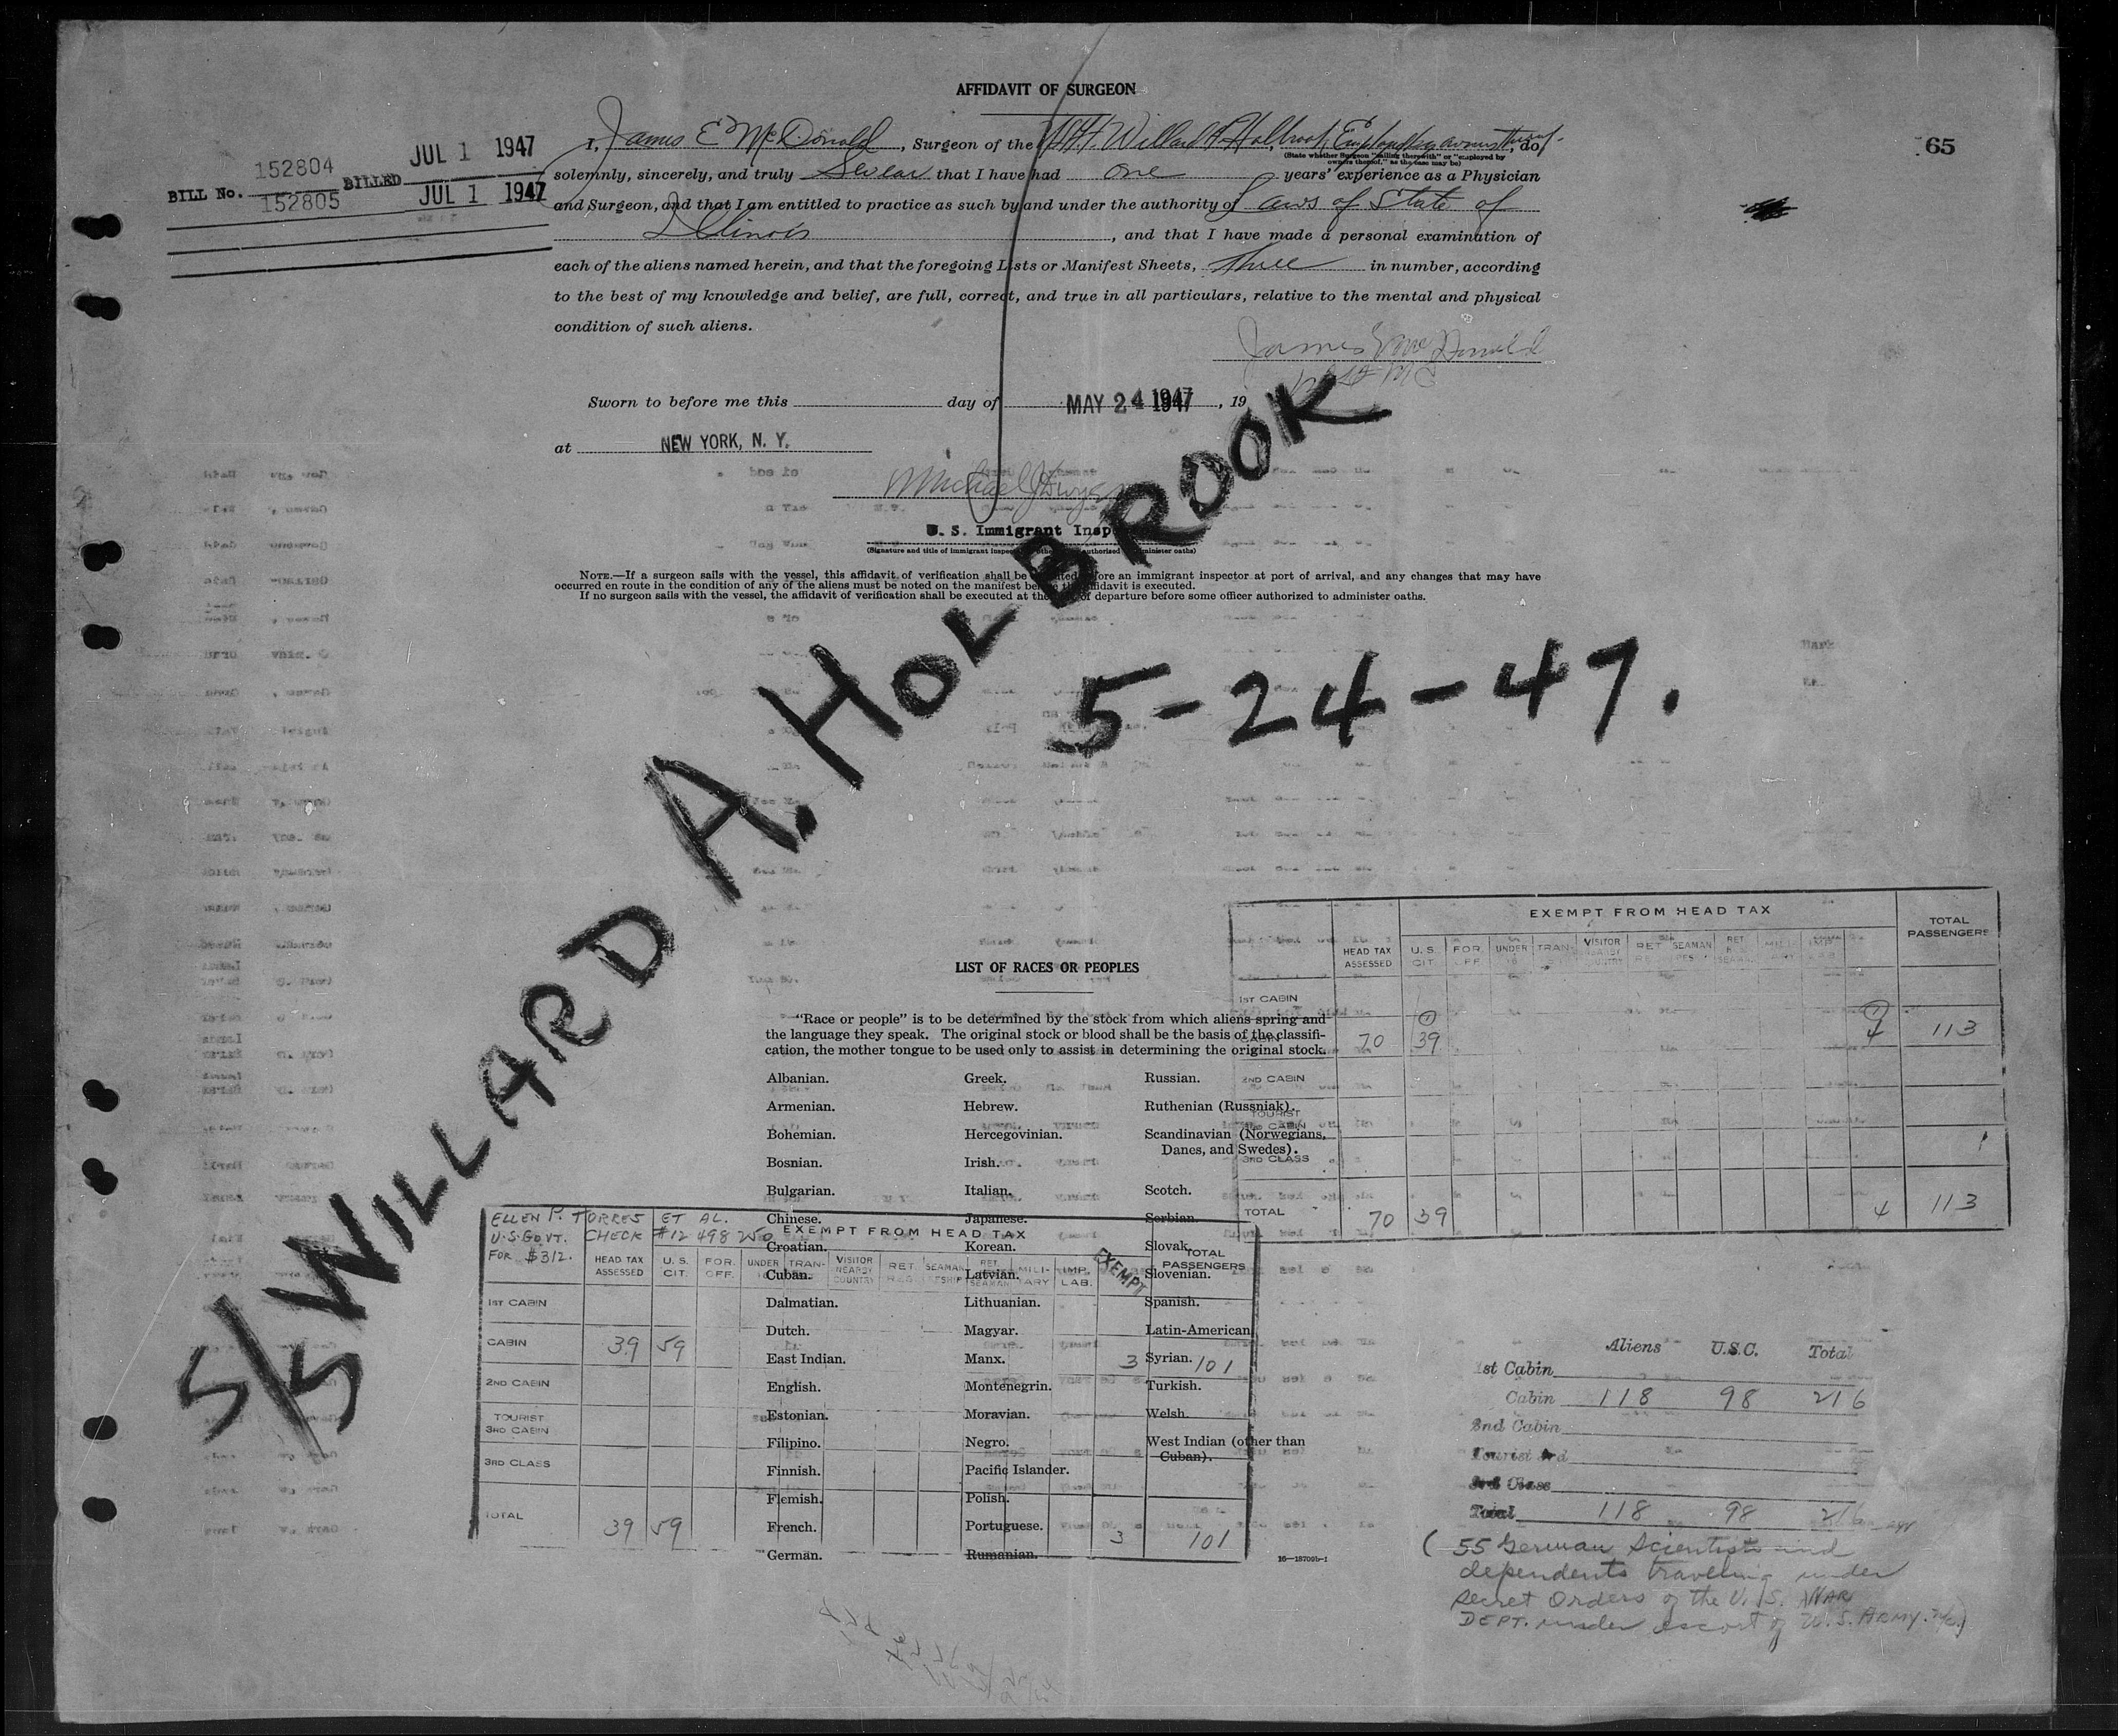 AFFIDAVIT OF SURGEON
65
BILL No. 152804 BILLED JUL 1 1947
152805 JUL 1 1947
I, James E McDonald, Surgeon of the Willard A Holbrook, Employed by owners thereof, do
(State whether Surgeon "sailing therewith" or "employed by
owners thereof," as the case may be)
solemnly, sincerely, and truly Swear that I have had one years' experience as a Physician
and Surgeon, and that I am entitled to practice as such by and under the authority of Laws of State of
Illinois, and that I have made a personal examination of
each of the aliens named herein, and that the foregoing Lists or Manifest Sheets, three in number, according
to the best of my knowledge and belief, are full, correct, and true in all particulars, relative to the mental and physical
condition of such aliens.
James E McDonald
Sworn to before me this day of MAY 24 1947, 19
at NEW YORK, N. Y.
Michael J Dwyer
U. S. Immigrant Insp
(Signature and title of immigrant inspector or other authorized to administer oaths)
NOTE.—If a surgeon sails with the vessel, this affidavit of verification shall be executed before an immigrant inspector at port of arrival, and any changes that may have
occurred en route in the condition of any of the aliens must be noted on the manifest before the affidavit is executed.
If no surgeon sails with the vessel, the affidavit of verification shall be executed at the port of departure before some officer authorized to administer oaths.
S/S WILLARD A. HOLBROOK
5-24-47.
LIST OF RACES OR PEOPLES
"Race or people" is to be determined by the stock from which aliens spring and
the language they speak. The original stock or blood shall be the basis of the classifi-
cation, the mother tongue to be used only to assist in determining the original stock.
Albanian. Greek. Russian.
Armenian. Hebrew. Ruthenian (Russniak).
Bohemian. Hercegovinian. Scandinavian (Norwegians,
Danes, and Swedes).
Bosnian. Irish.
Bulgarian. Italian. Scotch.
Chinese. Japanese. Serbian.
Croatian. Korean. Slovak.
Cuban. Latvian. Slovenian.
Dalmatian. Lithuanian. Spanish.
Dutch. Magyar. Latin-American
East Indian. Manx. Syrian.
English. Montenegrin. Turkish.
Estonian. Moravian. Welsh.
Filipino. Negro. West Indian (other than
Cuban).
Finnish. Pacific Islander.
Flemish. Polish.
French. Portuguese.
German. Rumanian.
16—18709b-1
EXEMPT FROM HEAD TAX
HEAD TAX ASSESSED U. S. CIT. FOR. OFF. UNDER 16 TRAN- VISITOR NEARBY COUNTRY RET. SEAMAN RET. TOTAL PASSENGERS
1ST CABIN
CABIN 70 39 4 113
2ND CABIN
TOURIST
3RD CABIN
3RD CLASS
TOTAL 70 39 4 113
ELLEN P. TORRES ET AL.
U.S. GOVT. CHECK #12 498 250
FOR $312.
EXEMPT FROM HEAD TAX
HEAD TAX ASSESSED U. S. CIT. FOR. OFF. UNDER TRAN- VISITOR NEARBY COUNTRY RET. SEAMAN RET. SEAMAN MILI-TARY IMP. LAB. EXEMPT TOTAL PASSENGERS
1ST CABIN
CABIN 39 59 3 101
2ND CABIN
TOURIST
3RD CABIN
3RD CLASS
TOTAL 39 59 3 101
Aliens U.S.C. Total
1st Cabin
Cabin 118 98 216
2nd Cabin
Tourist 3rd
3rd Class
Total 118 98 216
(55 German Scientists and
dependents traveling under
secret orders of the U.S. WAR
DEPT. under escort of U.S. ARMY.